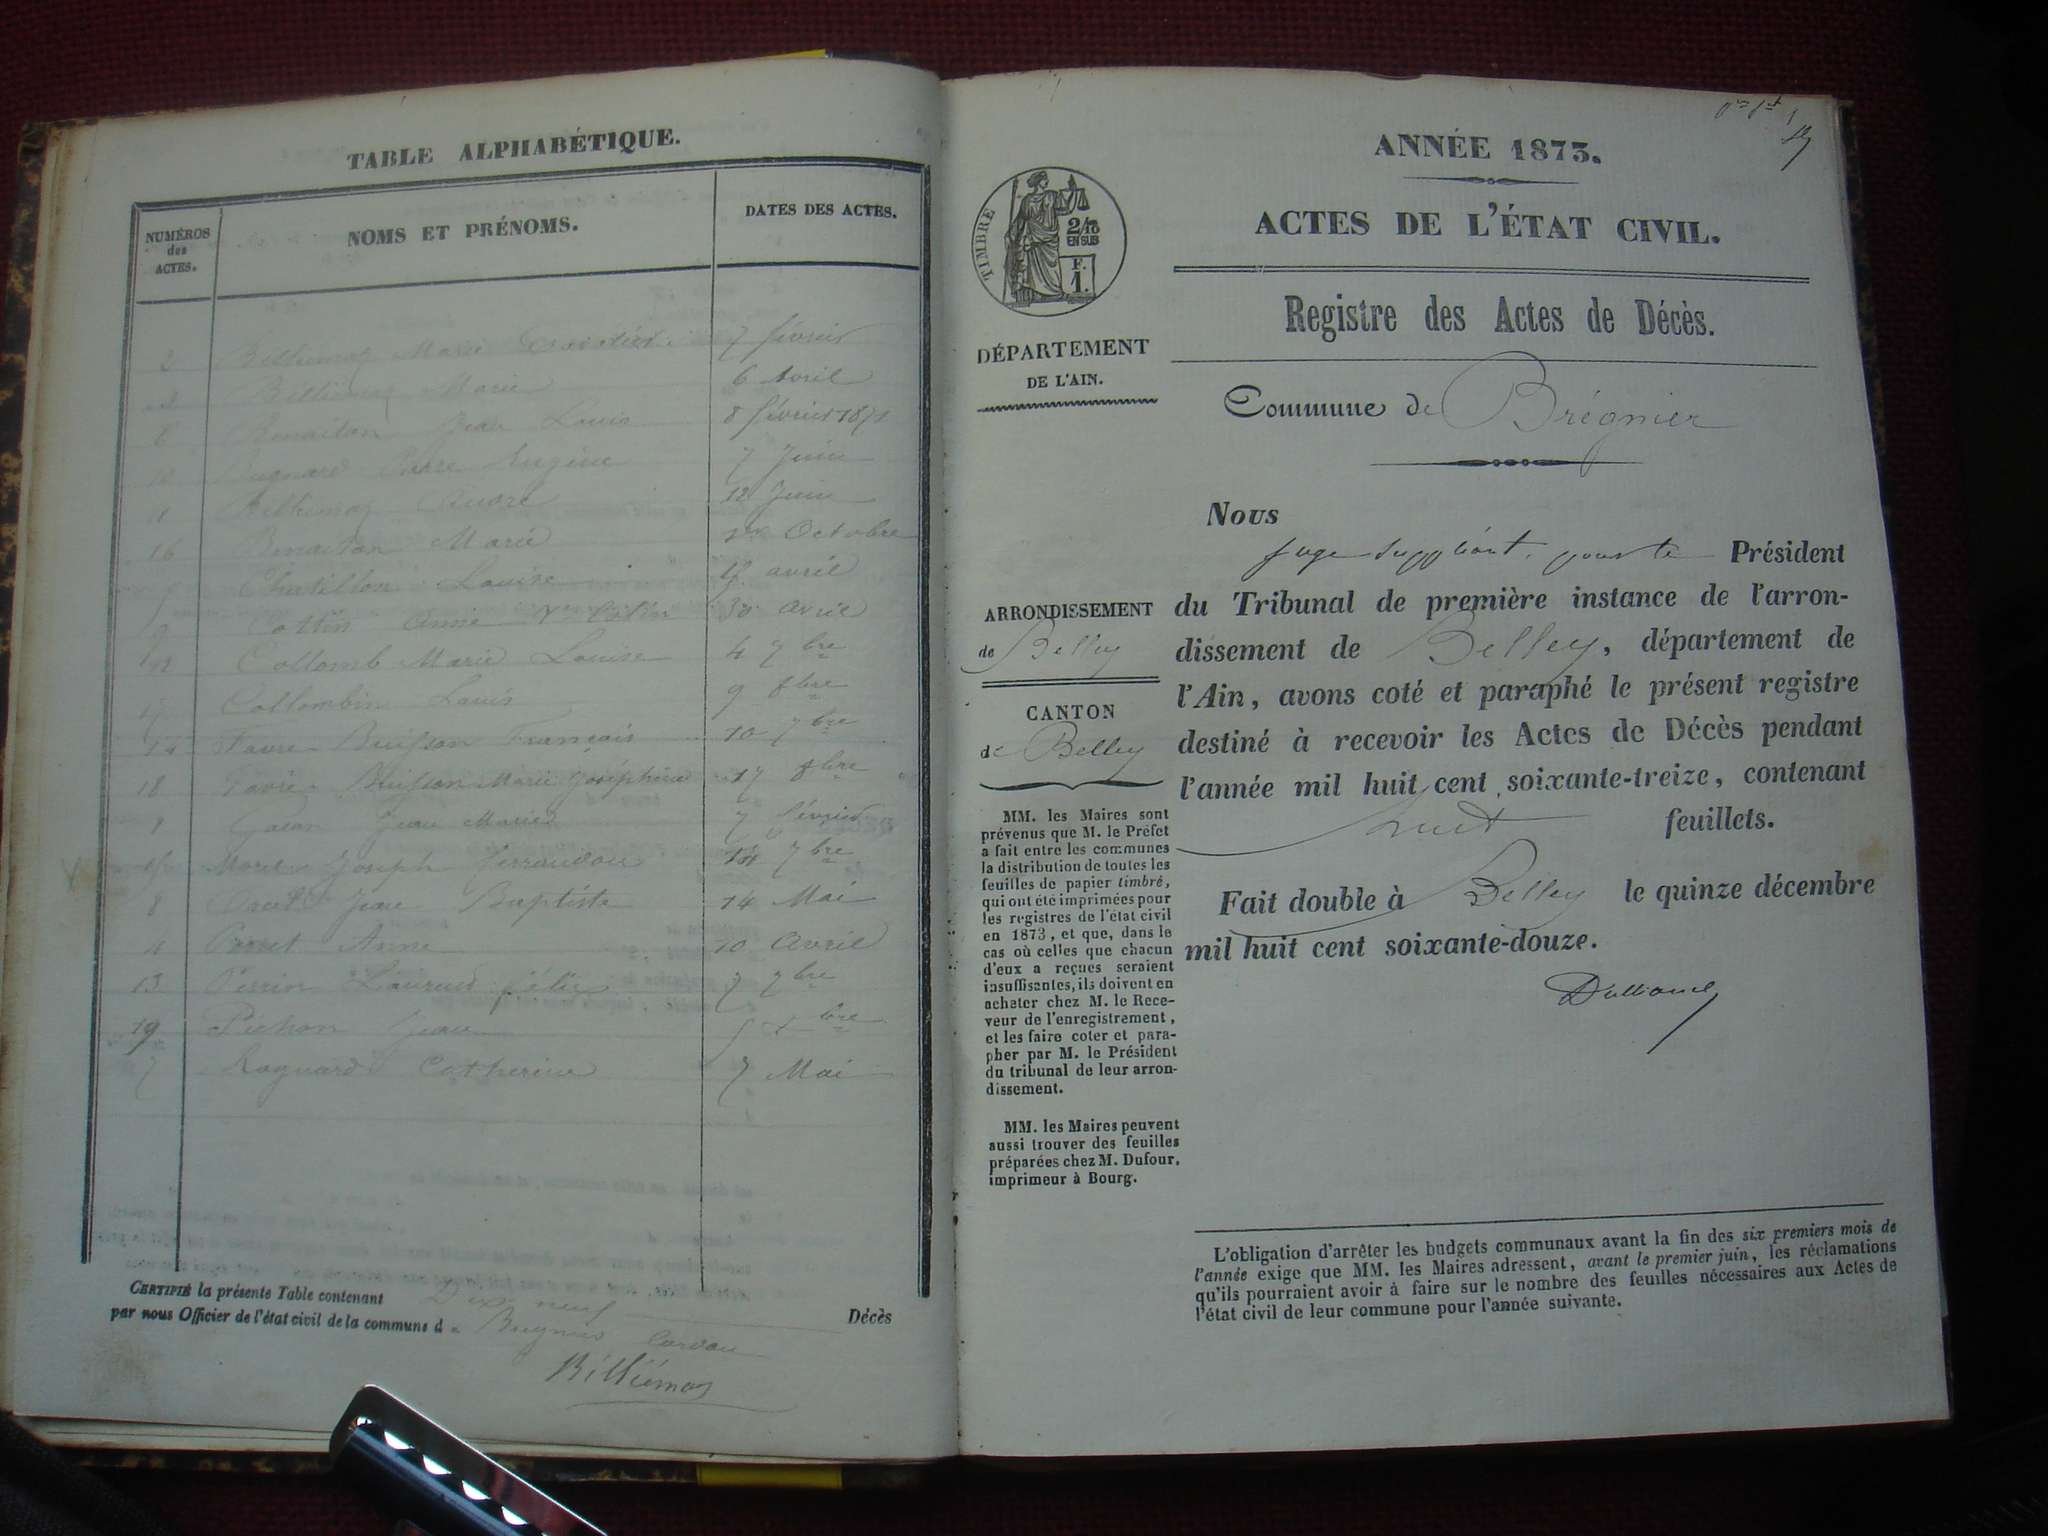 TABLE ALPHABÉTIQUE.
NUMÉROS
des
ACTES.
NOMS ET PRÉNOMS.
DATES DES ACTES.
2 Billiemaz Marie 7 février
3 Billiemaz Marie 6 Avril
6 Benaiton Jean Louis 8 février 1871
10 Pierre Eugène 7 Juin
11 Billiemaz André 12 Juin
16 Benaiton Marie Octobre
5 Chatillon Louise avril
9 Cottin Anne Ve Cotin 30 avril
12 Collomb Marie Louise 4 7bre
17 Collombin Louis 9 8bre
14 Favre Buisson François 10 7bre
18 Favre Buisson Marie Joséphine 17 8bre
1 Jean Marie 7 février
15 Morel Joseph 14 7bre
8 Jean Baptiste 14 Mai
4 Perret Anne 10 Avril
13 Perrin 7 7bre
19 Pichon Jean bre
7 Catherine 7 Mai
CERTIFIÉ la présente Table contenant Dix neuf Décès
par nous Officier de l'état civil de la commune d e Bregnier Cordon
Billiémaz
ANNÉE 1873.
ACTES DE L'ÉTAT CIVIL.
TIMBRE
2/10
EN SUS
F.
1.
Registre des Actes de Décès.
DÉPARTEMENT
DE L'AIN.
Commune de Brégnier
ARRONDISSEMENT
de Belley
CANTON
de Belley
MM. les Maires sont
prévenus que M. le Préfet
a fait entre les communes
la distribution de toutes les
feuilles de papier timbré,
qui ont été imprimées pour
les registres de l'état civil
en 1873, et que, dans le
cas où celles que chacun
d'eux a reçues seraient
insuffisantes, ils doivent en
acheter chez M. le Rece-
veur de l'enregistrement,
et les faire coter et para-
pher par M. le Président
du tribunal de leur arron-
dissement.
MM. les Maires peuvent
aussi trouver des feuilles
préparées chez M. Dufour,
imprimeur à Bourg.
Nous
juge suppléant, pour le Président
du Tribunal de première instance de l'arron-
dissement de Belley, département de
l'Ain, avons coté et paraphé le présent registre
destiné à recevoir les Actes de Décès pendant
l'année mil huit cent soixante-treize, contenant
huit feuillets.
Fait double à Belley le quinze décembre
mil huit cent soixante-douze.
L'obligation d'arrêter les budgets communaux avant la fin des six premiers mois de
l'année exige que MM. les Maires adressent, avant le premier juin, les réclamations
qu'ils pourraient avoir à faire sur le nombre des feuilles nécessaires aux Actes de
l'état civil de leur commune pour l'année suivante.